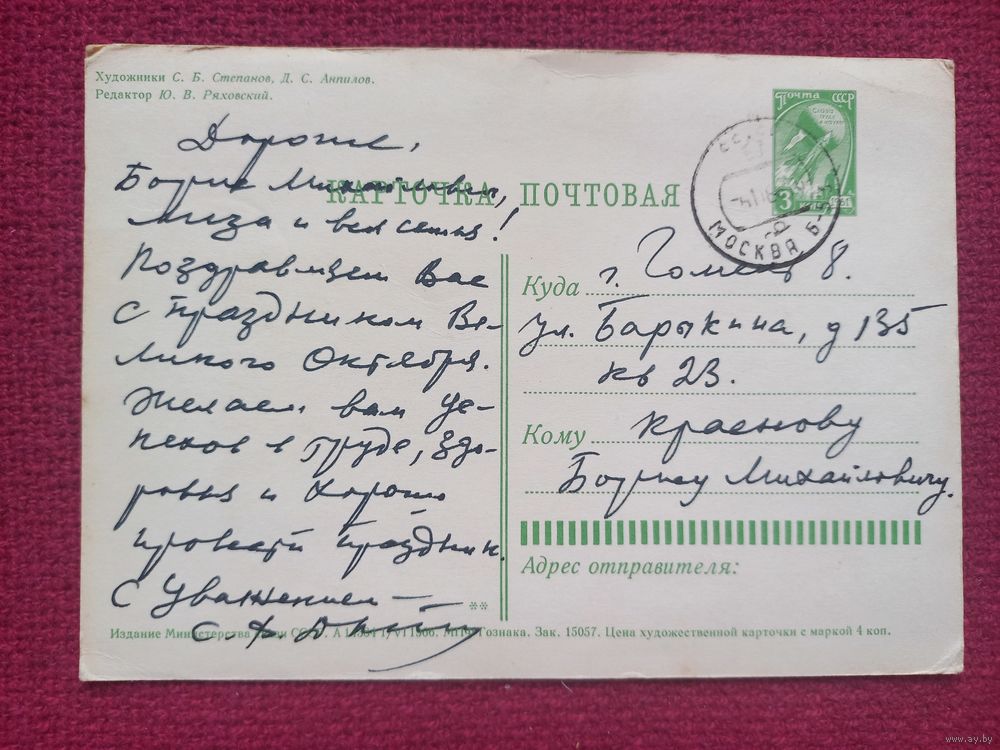 Художники С. Б. Степанов, Д. С. Анпилов.
Редактор Ю. В. Ряховский.
Почта СССР
3
1961
МОСКВА Б-
КАРТОЧКА ПОЧТОВАЯ
Дорогие,
Борис Михайлович,
Лиза и вся семья!
Поздравляем Вас
с праздником Ве-
ликого Октября.
Желаем вам ус-
пехов в труде, здо-
ровья и хорошо
провести праздник.
С уважением —
Куда г. Гомель 8.
ул. Барыкина, д 135
кв 23.
Кому Краснову
Борису Михайловичу.
Адрес отправителя:
**
Издание Министерства связи СССР. 1966. МПФ Гознака. Зак. 15057. Цена художественной карточки с маркой 4 коп.
www.ay.by